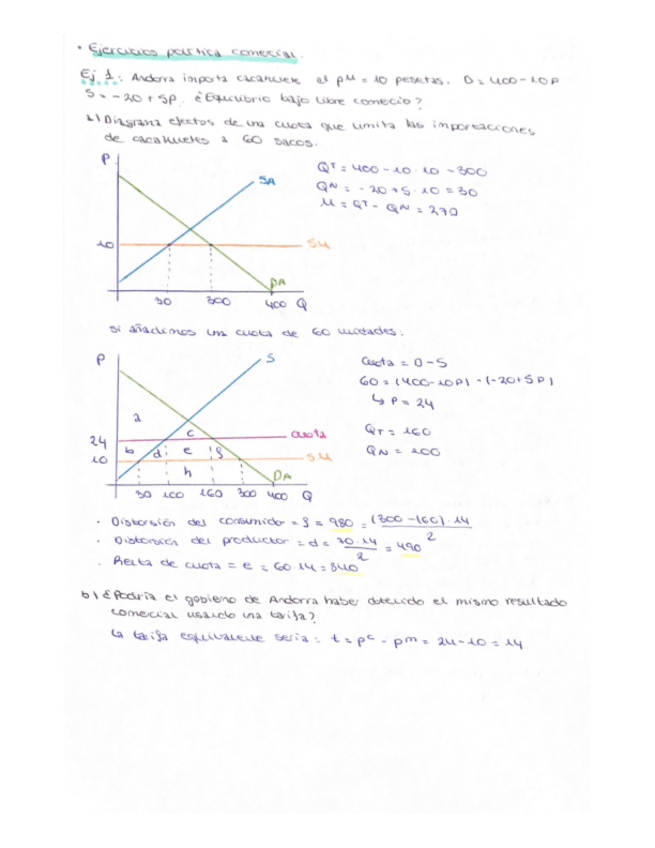 · Ejercicios política comercial.
Ej 1: Andorra importa cacahuete al pᴹ = 10 pesetas. D = 400 - 10P
S = - 20 + 5P. ¿Equilibrio bajo libre comercio?
a) Diagrama efectos de una cuota que limita las importaciones
de cacahuetes a 60 sacos.
P
QT = 400 - 10 · 10 - 300
QN = - 20 + 5 · 10 = 30
M = QT - QN = 270
SA
10
SM
DA
30 300 400 Q
Si añadimos una cuota de 60 unidades:
P
S
Cuota = D - S
60 = (400 - 10P) - (-20 + 5P)
↳ P = 24
QT = 160
QN = 100
a
c
24
cuota
b d e f
10
SM
h
DA
30 100 160 300 400 Q
· Distorsión del consumido = f = 980 = (300 - 160) · 14
2
· Distorsión del productor = d = 70 · 14 = 490
2
· Renta de cuota = e = 60 · 14 = 840
b) ¿Podría el gobieno de Andorra haber obtenido el mismo resultado
comercial usando una tarifa?
La tarifa equivalente sería: t = pᶜ - pᵐ = 24 - 10 = 14